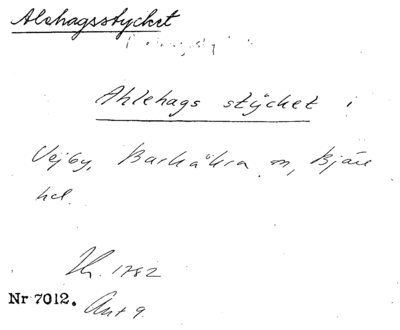 Alshagsstycket
Ahlehags stÿcket i
Vejby, Barkåkra sn, Bjäre
hd.
1782
Nr 7012. Akt 9.